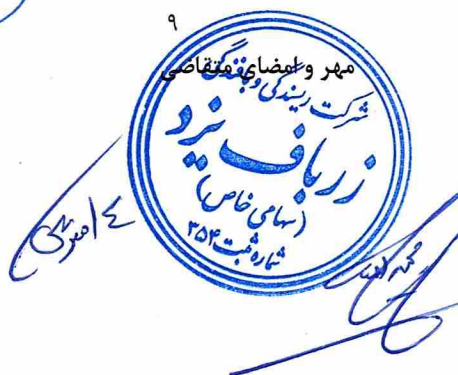 ۹
مهر و امضای متقاضی
شرکت ریسندگی و بافندگی
زرباف یزد
(سهامی خاص)
شماره ثبت ۳۵۴